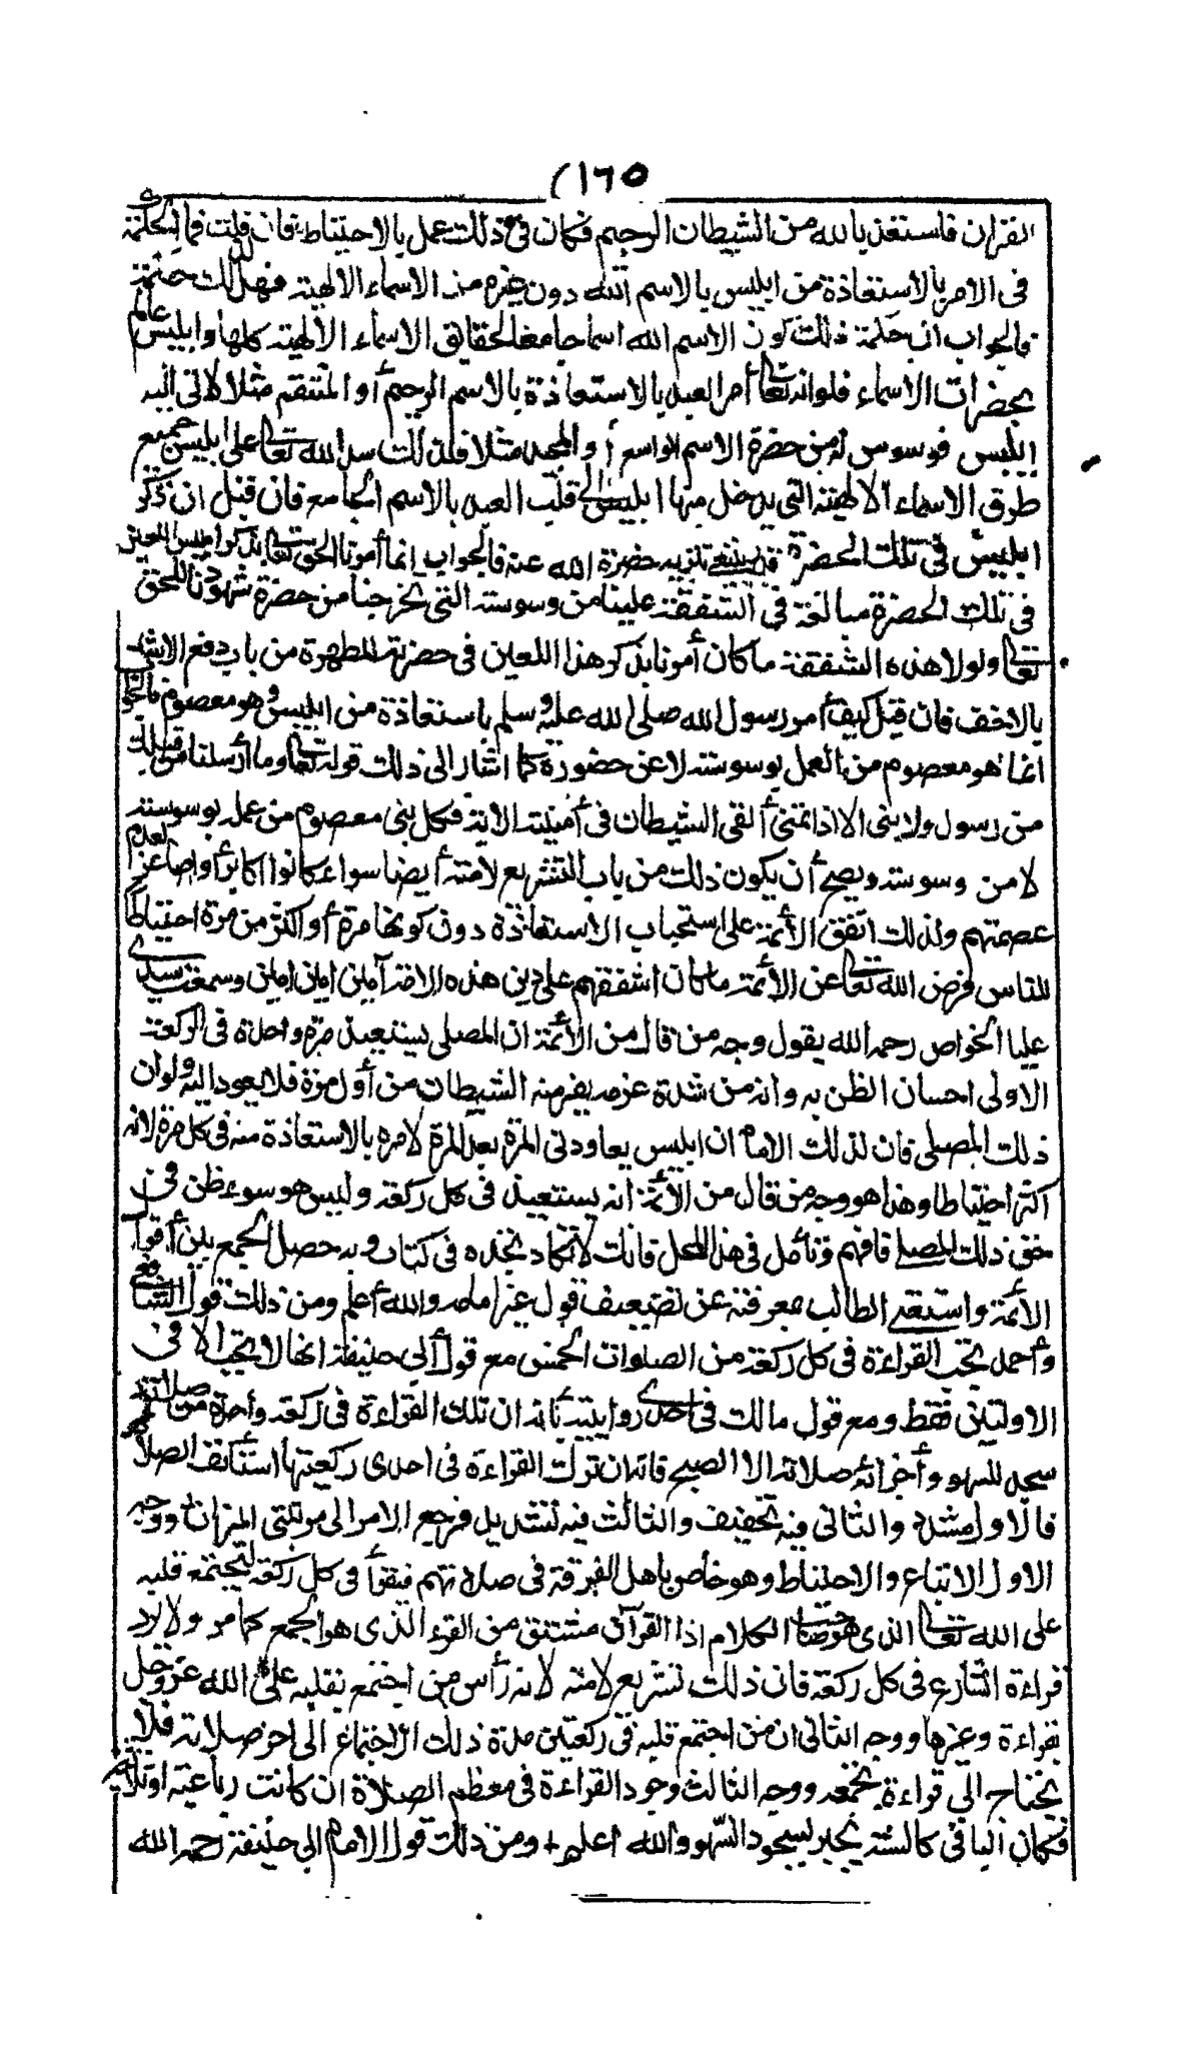 (١٦٥
القران فاستعذ بالله من الشيطان الرجيم فكان في ذلك عمل بالاحتياط فان قلت فما الحكمة
فى الامر بالاستعاذة من ابليس بالاسم الله دون غيره من الاسماء الالهية فهل لذلك حكمة
فالجواب ان حكمة ذلك كون الاسم الله اسما جامعا لحقايق الاسماء الالهية كلها وابليس عالم
بحضرات الاسماء فلو انه تعالى أمر العبد بالاستعاذة بالاسم الرحيم أو المنتقم مثلا لاتى اليه
ابليس فوسوس له من حضرة الاسم الواسع أو المجد مثلا فلذلك سد الله تعالى على ابليس جميع
طرق الاسماء الالهية التى يدخل منها ابليس الى قلب العبد بالاسم الجامع فان قيل ان ذكر
ابليس في تلك الحضرة قد ينبغي تنزيه حضرة الله عنه فالجواب انما أمرنا الحق تعالى بذكر ابليس اللعين
فى تلك الحضرة مبالغة في الشفقة علينا من وسوسته التى تخرجنا من حضرة شهودنا للحق
تعالى ولولا هذه الشفقة ما كان أمرنا بذكر هذا اللعين فى حضرته المطهرة من باب دفع الاشد
بالاخف فان قيل كيف أمر رسول الله صلى الله عليه وسلم باستعاذة من ابليس وهو معصوم فالجواب
انما هو معصوم من العمل بوسوسته لا عن حضوره كما اشار الى ذلك قوله تعالى وما أرسلنا من قبلك
من رسول ولا نبى الا اذا تمنى ألقى الشيطان فى أمنيته الاية فكل نبى معصوم من عمل بوسوسته
لا من وسوسته ويصح أن يكون ذلك من باب التشريع لامته أيضا سواء كانوا اكابر أو اصاغر لعدم
عصمتهم ولذلك اتفق الأئمة على استحباب الاستعاذة دون كونها مرة أو اكثر من مرة احتياطا
للناس فرضى الله تعالى عن الأئمة ما كان اشفقهم على دين هذه الامة آمين امين امين وسمعت سيدى
عليا الخواص رحمه الله يقول وجه من قال من الأئمة ان المصلى يستعيذ مرة واحدة فى الركعة
الاولى احسان الظن به وانه من شدة عزمه يفر منه الشيطان من أول مرة فلا يعود اليه ولو ان
ذلك المصلى قال لذلك الامام ان ابليس يعاودنى المرة بعد المرة لامره بالاستعاذة منه فى كل مرة لانه
اكثر احتياطا وهذا هو وجه من قال من الأئمة انه يستعيذ فى كل ركعة وليس هو سوء ظن فى
حق ذلك المصلى فافهم وتأمل فى هذا المحل فانك لا تكاد تجده فى كتاب وبه حصل الجمع بين أقوال
الأئمة واستغنى الطالب بمعرفته عن تضعيف قول غير امامه والله أعلم ومن ذلك قول الشافعي
وأحمد تجب القراءة فى كل ركعة من الصلوات الخمس مع قول أبى حنيفة انها لا تجب الا فى
الاولتين فقط ومع قول مالك فى احدى روايتيه أنه ان تلك القراءة فى ركعة واحدة من صلاته
سجد للسهو وأجزأته صلاته الا الصبح فانه ان ترك القراءة فى احدى ركعتيها استأنف الصلاة
فالاول مشدد والثانى فيه تخفيف والثالث فيه تشديد فرجع الامر الى مرتبتى الميزان ووجه
الاول الاتباع والاحتياط وهو خاص بأهل الفرقة فى صلاتهم فيقرأ فى كل ركعة لتجتمع قلبه
على الله تعالى الذى هو صاحب الكلام اذا القرآن مشتق من القرء الذى هو الجمع كما مر ولا يرد
قراءة الشارع فى كل ركعة فان ذلك تشريع لامته لانه رأس من اجتمع بقلبه على الله عز وجل
بقراءة وغيرها ووجه الثانى ان من اجتمع قلبه فى ركعتين مدة ذلك الاجتماع الى اخر صلاته فلا
يحتاج الى قراءة تجمعه ووجه الثالث وجود القراءة فى معظم الصلاة ان كانت رباعية او ثلاثية
فكان الباقى كالسنة يجبر بسجود السهو والله اعلم + ومن ذلك قول الامام ابى حنيفة رحمه الله